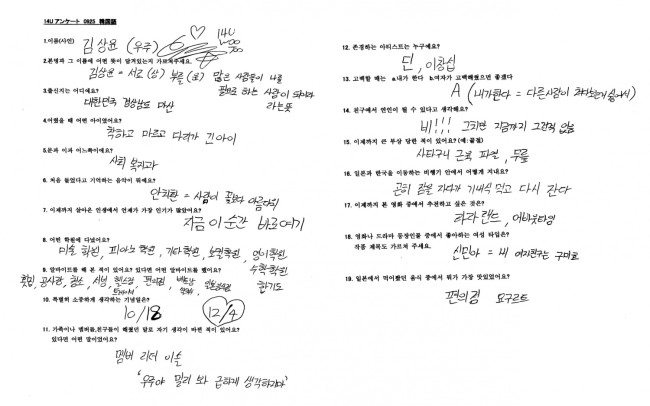 14U アンケート 0925 韓国語
1.이름(사인)
김상윤 (우주)
14U
2.본명과 그 이름에 어떤 뜻이 담겨있는지 가르쳐주세요.
김상윤 = 서로 (상) 부를 (윤) 많은 사람들이 나를
필요로 하는 사람이 되어라
라는 뜻
3.출신지는 어디에요?
대한민국 경상남도 마산
4.어렸을 때 어떤 아이였어요?
착하고 마르고 다리가 긴 아이
5.문과 이과 어느쪽이에요?
사회 복지과
6. 처음 들었다고 기억하는 음악이 뭐에요?
안치환 = 사람이 꽃보다 아름다워
7. 이제까지 살아온 인생에서 언제가 가장 인기가 많았어요?
지금 이 순간 바로 여기
8. 어떤 학원에 다녔어요?
미술 학원, 피아노 학원, 기타 학원, 보컬학원, 영어학원
수학학원
합기도
9. 알바이트를 해 본 적이 있어요? 있다면 어떤 알바이트를 했어요?
횟집, 공사장, 청소, 서빙, 헬스장, 편의점
10. 특별히 소중하게 생각하는 기념일은?
10/18 12/4
11. 가족이나 멤버들,친구들이 해줬던 말로 자기 생각이 바뀐 적이 있어요?
있다면 어떤 말이었어요?
멤버 리더 이솔
'우주야 멀리 봐 급하게 생각하지마'
12. 존경하는 아티스트는 누구에요?
딘, 이창섭
13. 고백할 때는 a.내가 한다 b.여자가 고백해줬으면 좋겠다
A (내가한다 = 다른사람이 채가는게 싫어서)
14. 친구에서 연인이 될 수 있다고 생각해요?
네!!! 그치만 지금까지 그런적 없음
15. 이제까지 큰 부상 당한 적이 있어요? (예:골절)
사타구니 근육 파열, 무릎
16. 일본과 한국을 이동하는 비행기 안에서 어떻게 지내요?
곤히 잠을 자다가 기내식 먹고 다시 잔다
17. 이제까지 본 영화 중에서 추천하고 싶은 것은?
라라랜드, 어바웃타임
18. 영화나 드라마 등장인물 중에서 좋아하는 여성 타입은?
작품 제목도 가르쳐 주세요.
신민아 = 내 여자친구는 구미호
19. 일본에서 먹어봤던 음식 중에서 뭐가 가장 맛있었어요?
편의점 요구르트